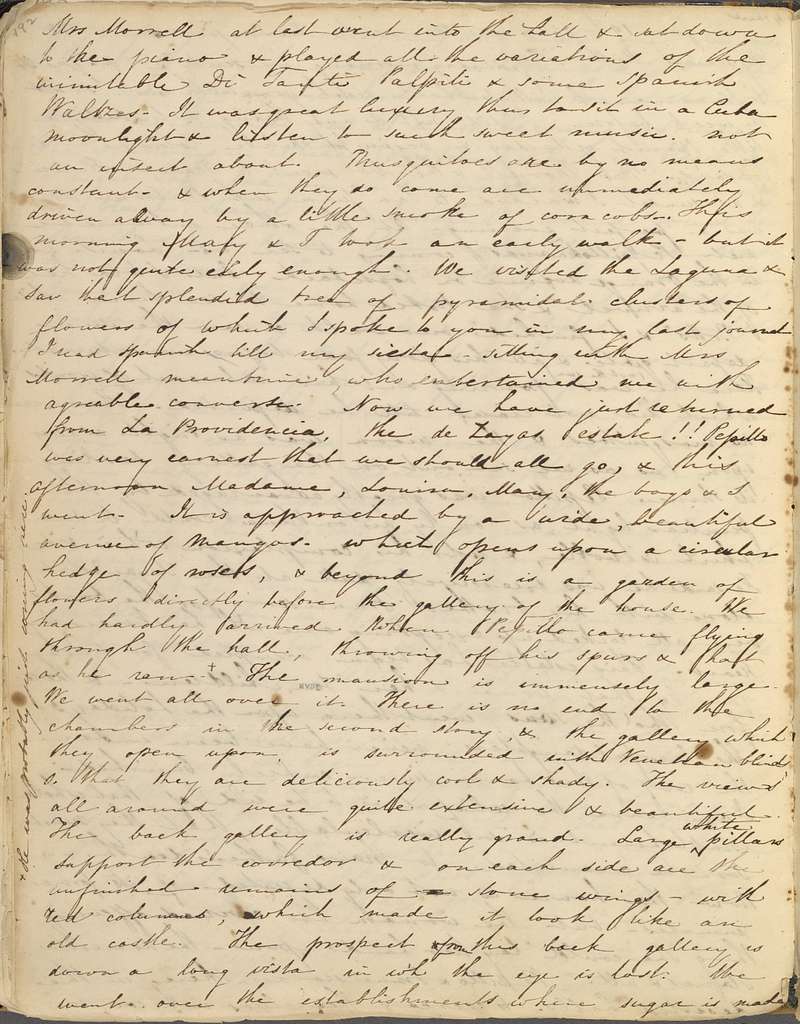 192
Mrs Morrell at last went into the hall & sat down
to the piano & played all the variations of the
inimitable Di Tanti Palpiti & some Spanish
Waltzes. It was great luxury thus to sit in a Cuba
moonlight & listen to such sweet music. not
an insect about. Musquitoes are by no means
constant. & when they do come are immediately
driven away by a little smoke of corn cobs. This
morning Mary & I took an early walk - but it
was not quite early enough. We visited the Laguna &
saw that splendid tree of pyramidal clusters of
flowers of which I spoke to you in my last journal
I read Spanish till my siesta - sitting with Mrs
Morrell meantime, who entertained me with
agreable converse. Now we have just returned
from La Providencia, the de Zayas estate!! Pepillo
was very earnest that we should all go, & this
afternoon Madame, Louisa, Mary, the boys & I
went. It is approached by a wide, beautiful
avenue of mangos. which opens upon a circular
hedge of roses, & beyond this is a garden of
flowers directly before the gallery of the house. We
had hardly arrived when Pepillo came flying
through the hall, throwing off his spurs & hat
as he ran.+ The mansion is immensely large.
We went all over it. There is no end to the
chambers in the second story, & the gallery which
they open upon, is surrounded with Venetian blinds
so that they are deliciously cool & shady. The views
all around were quite extensive & beautiful.
The back gallery is really grand. Large white pillars
support the corredor & on each side are the
unfinished remains of stone wings - with
red columns, which made it look like an
old castle. The prospect from this back gallery is
down a long vista in wh the eye is lost. We
went over the establishments where sugar is made
+ He was probably just coming here.